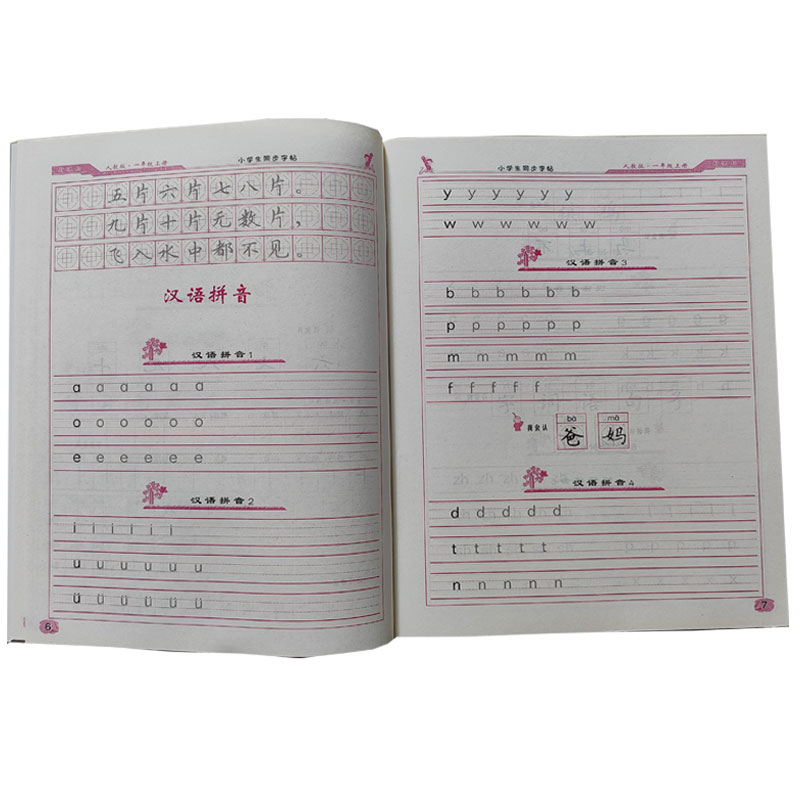 人教版·一年级上册
小学生同步字帖
五片六片七八片。
九片十片无数片，
飞入水中都不见。
汉语拼音
汉语拼音1
a a a a a a
o o o o o o
e e e e e e
汉语拼音2
i i i i i i
u u u u u u
ü ü ü ü ü ü
6
小学生同步字帖
人教版·一年级上册
y y y y y y
w w w w w w
汉语拼音3
b b b b b b
p p p p p p
m m m m m
f f f f f
我会认
bà mā
爸 妈
汉语拼音4
d d d d d
t t t t t
n n n n n
7